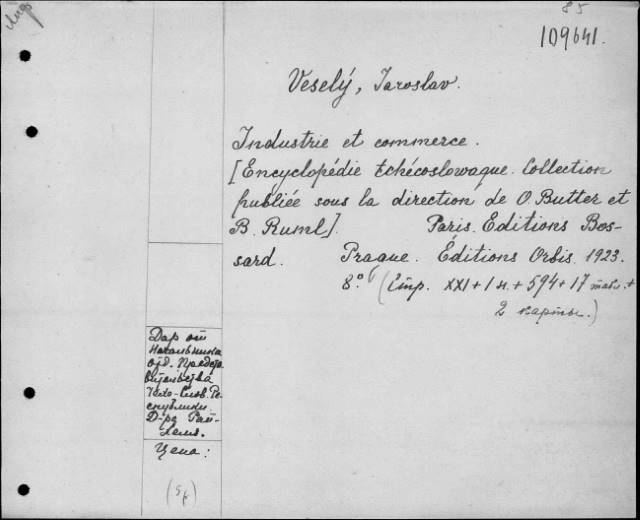 85
109641.
Veselý, Jaroslav.
Industrie et commerce.
[Encyclopédie tchécoslovaque. Collection
publiée sous la direction de O. Butter et
B. Ruml]. Paris. Éditions Bos-
sard. Prague. Éditions Orbis. 1923.
8º. (Стр. XXI + 1 н. + 594 + 17 табл. +
2 карты.)
Дар от
Начальника
отд. Представ
Чехо-Слов. Ре
спублики
Д-ра
Цена: